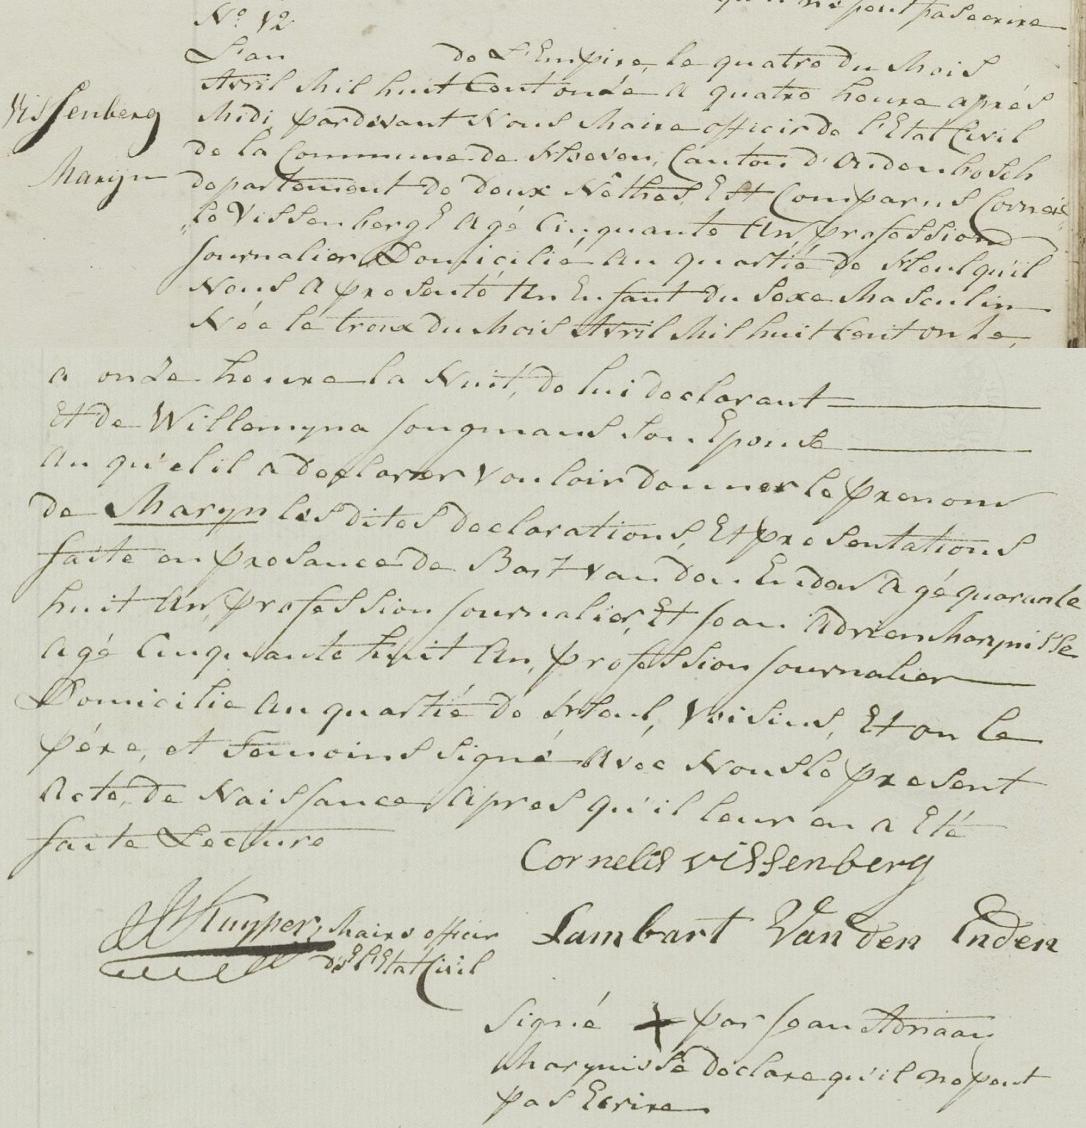 qu'il ne peut pas ecrire
N.º 12
L'an de L'Empire, le quatre du Mois
Avril Mil huit Cent onze a quatre heure aprés
Vissenberg
Midi pardevant Nous Maire officir de l'Etat Civil
de la Commune de Hoeven, Canton d'Oudenbosch
Maryn
departement de Deux Nêthes, Est Comparus Cornei„
„le Vissenberg Agé Cinquante An, profession
Journalier, Domicilié Au quartié de Houl, qu'il
Nous A presenté Un Enfant du Sexe Masculin
Née le troix du Mois Avril Mil huit Cent onze,
a onze heure la Nuit, de lui declarant
Et de Willemyna Jongmans Son Epouse
Au qu'el il a declarer Vouloir donner le prenom
de Maryn les dites declarations, Et presentations
faite en presance de Bart van den Enden Agé quarante
huit An, profession journalier, Et Jean Adrien Marynisse
Agé Cinquante huit An, profession journalier
Domicilie Au quartié de Houl, Voisins, Et on le
pére, et Temoins Signé Avec Nous le present
Acte, de Naissance Apres qu'il leur en a Eté
faite Lecture
Cornelis vissenberg
Kuyper, Maire officir
de l'Etat Civil
Lambart Van den Enden
Signé + par Jean Adriaan
Marynisse declare qu'il ne peut
pas Ecrire